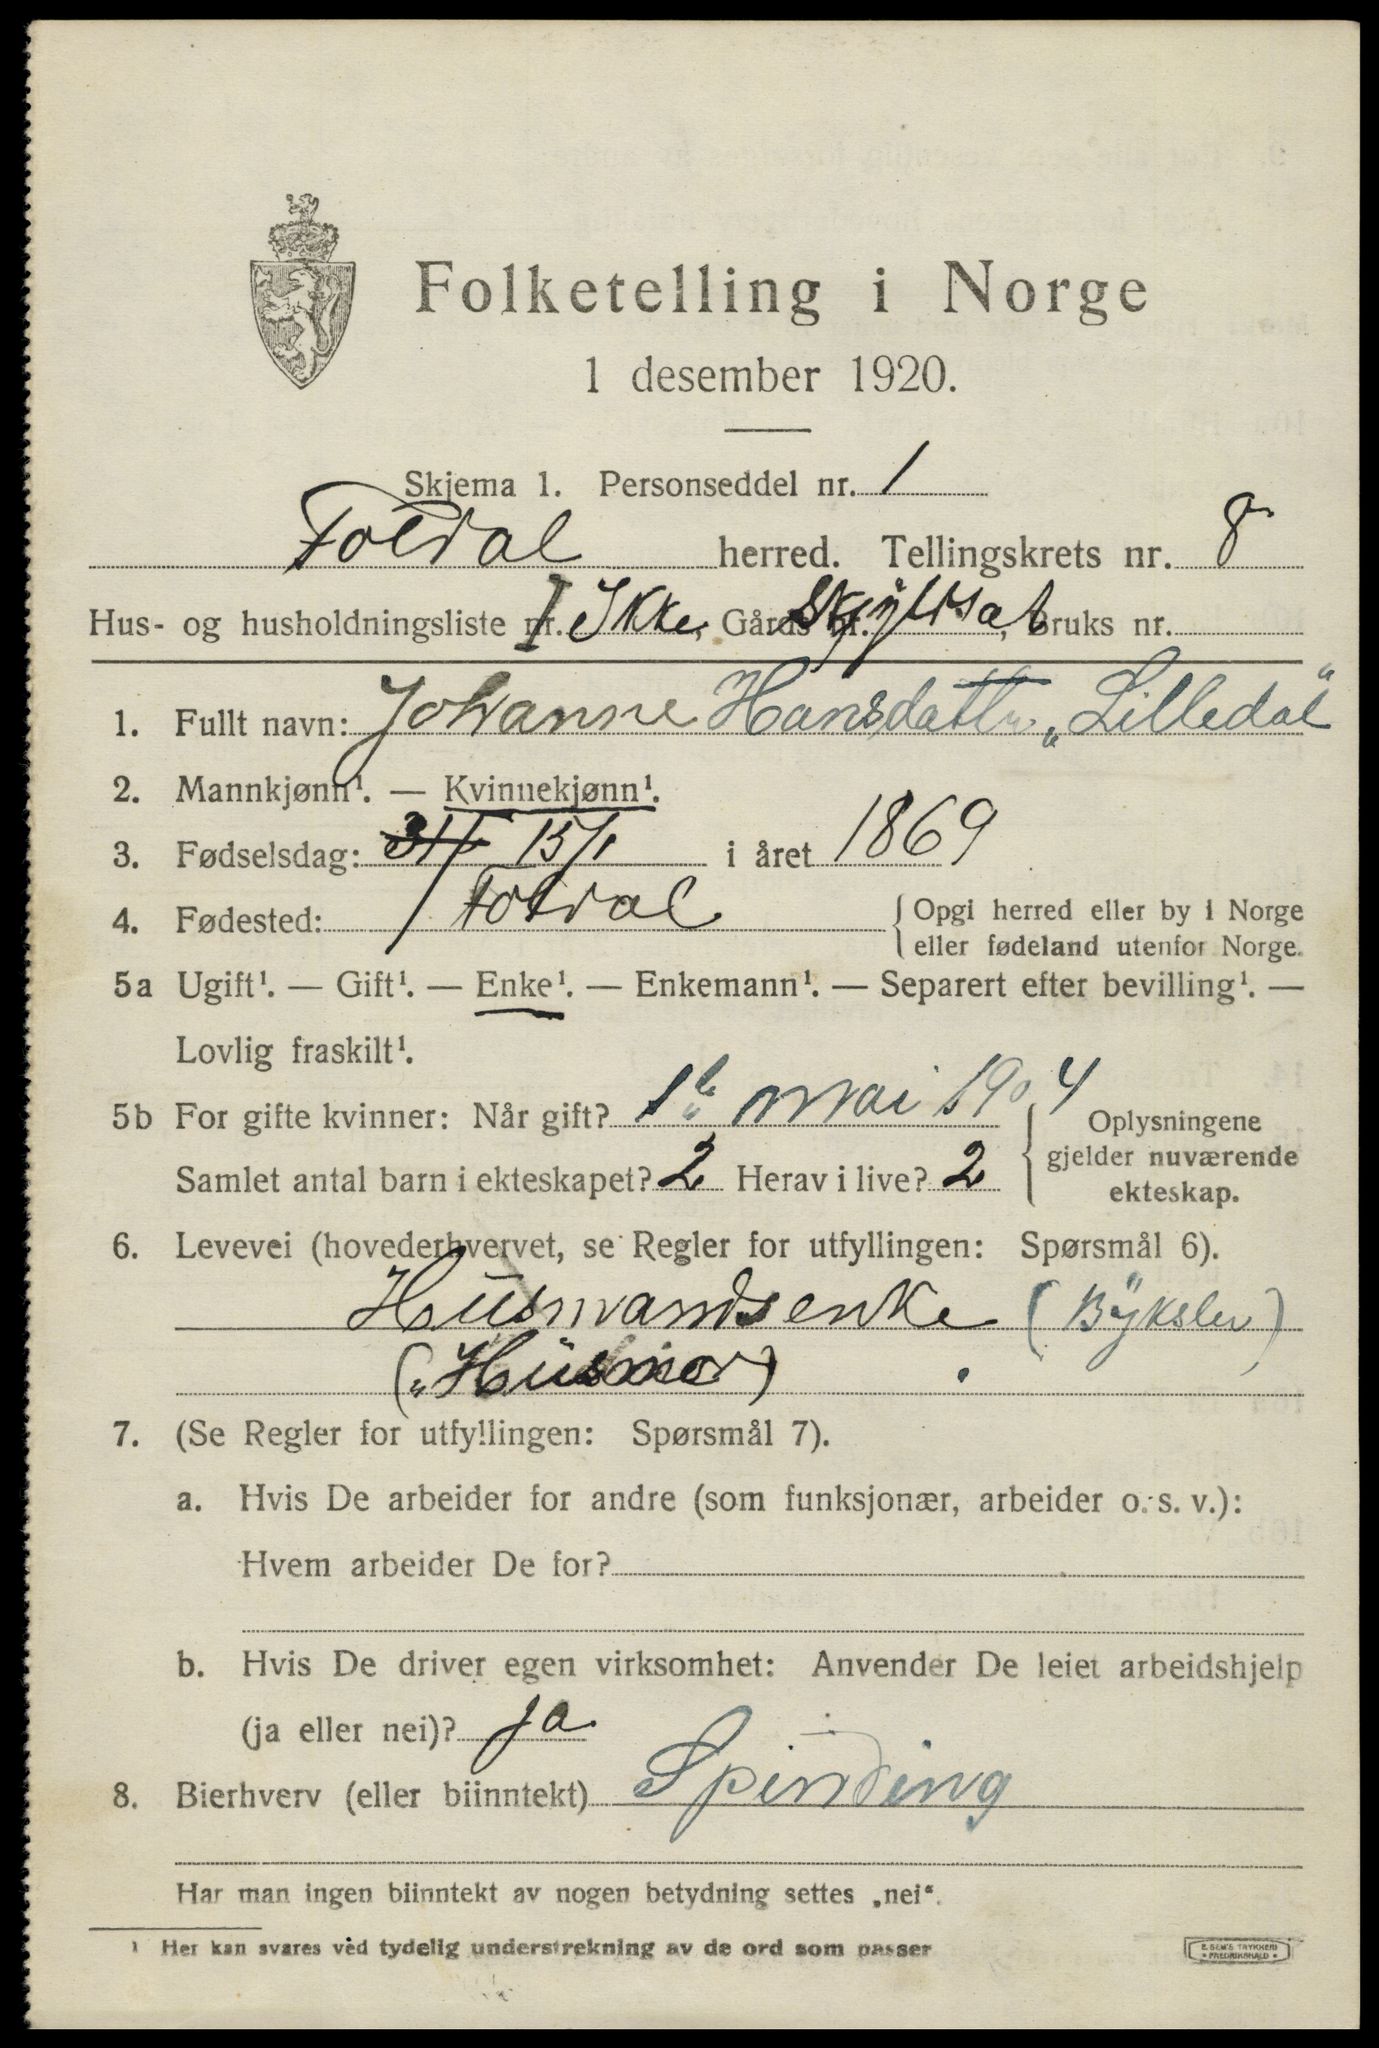 Folketelling i Norge
1 desember 1920.
Skjema 1. Personseddel nr. 1
Foldal herred. Tellingskrets nr. 8
Hus- og husholdningsliste nr. I Ikke, Gårds nr. Skyldsat, Bruks nr.
1. Fullt navn: Johanne Hansdatter „Lilledal"
2. Mannkjønn¹. — Kvinnekjønn¹.
3. Fødselsdag: 31/1 15/1 i året 1869
4. Fødested: Foldal { Opgi herred eller by i Norge
eller fødeland utenfor Norge.
5a Ugift¹. — Gift¹. — Enke¹. — Enkemann¹. — Separert efter bevilling¹. —
Lovlig fraskilt¹.
5b For gifte kvinner: Når gift? 1ste mai 1904
Samlet antal barn i ekteskapet? 2 Herav i live? 2
{ Oplysningene
gjelder nuværende
ekteskap.
6. Levevei (hovederhvervet, se Regler for utfyllingen: Spørsmål 6).
Husmandsenke (Byksler)
(„Husmor)
7. (Se Regler for utfyllingen: Spørsmål 7).
a. Hvis De arbeider for andre (som funksjonær, arbeider o. s. v.):
Hvem arbeider De for?
b. Hvis De driver egen virksomhet: Anvender De leiet arbeidshjelp
(ja eller nei)? ja
8. Bierhverv (eller biinntekt) Spinding
Har man ingen biinntekt av nogen betydning settes „nei".
¹ Her kan svares ved tydelig understrekning av de ord som passer
E. SEM'S TRYKKERI
• FREDRIKSHALD •